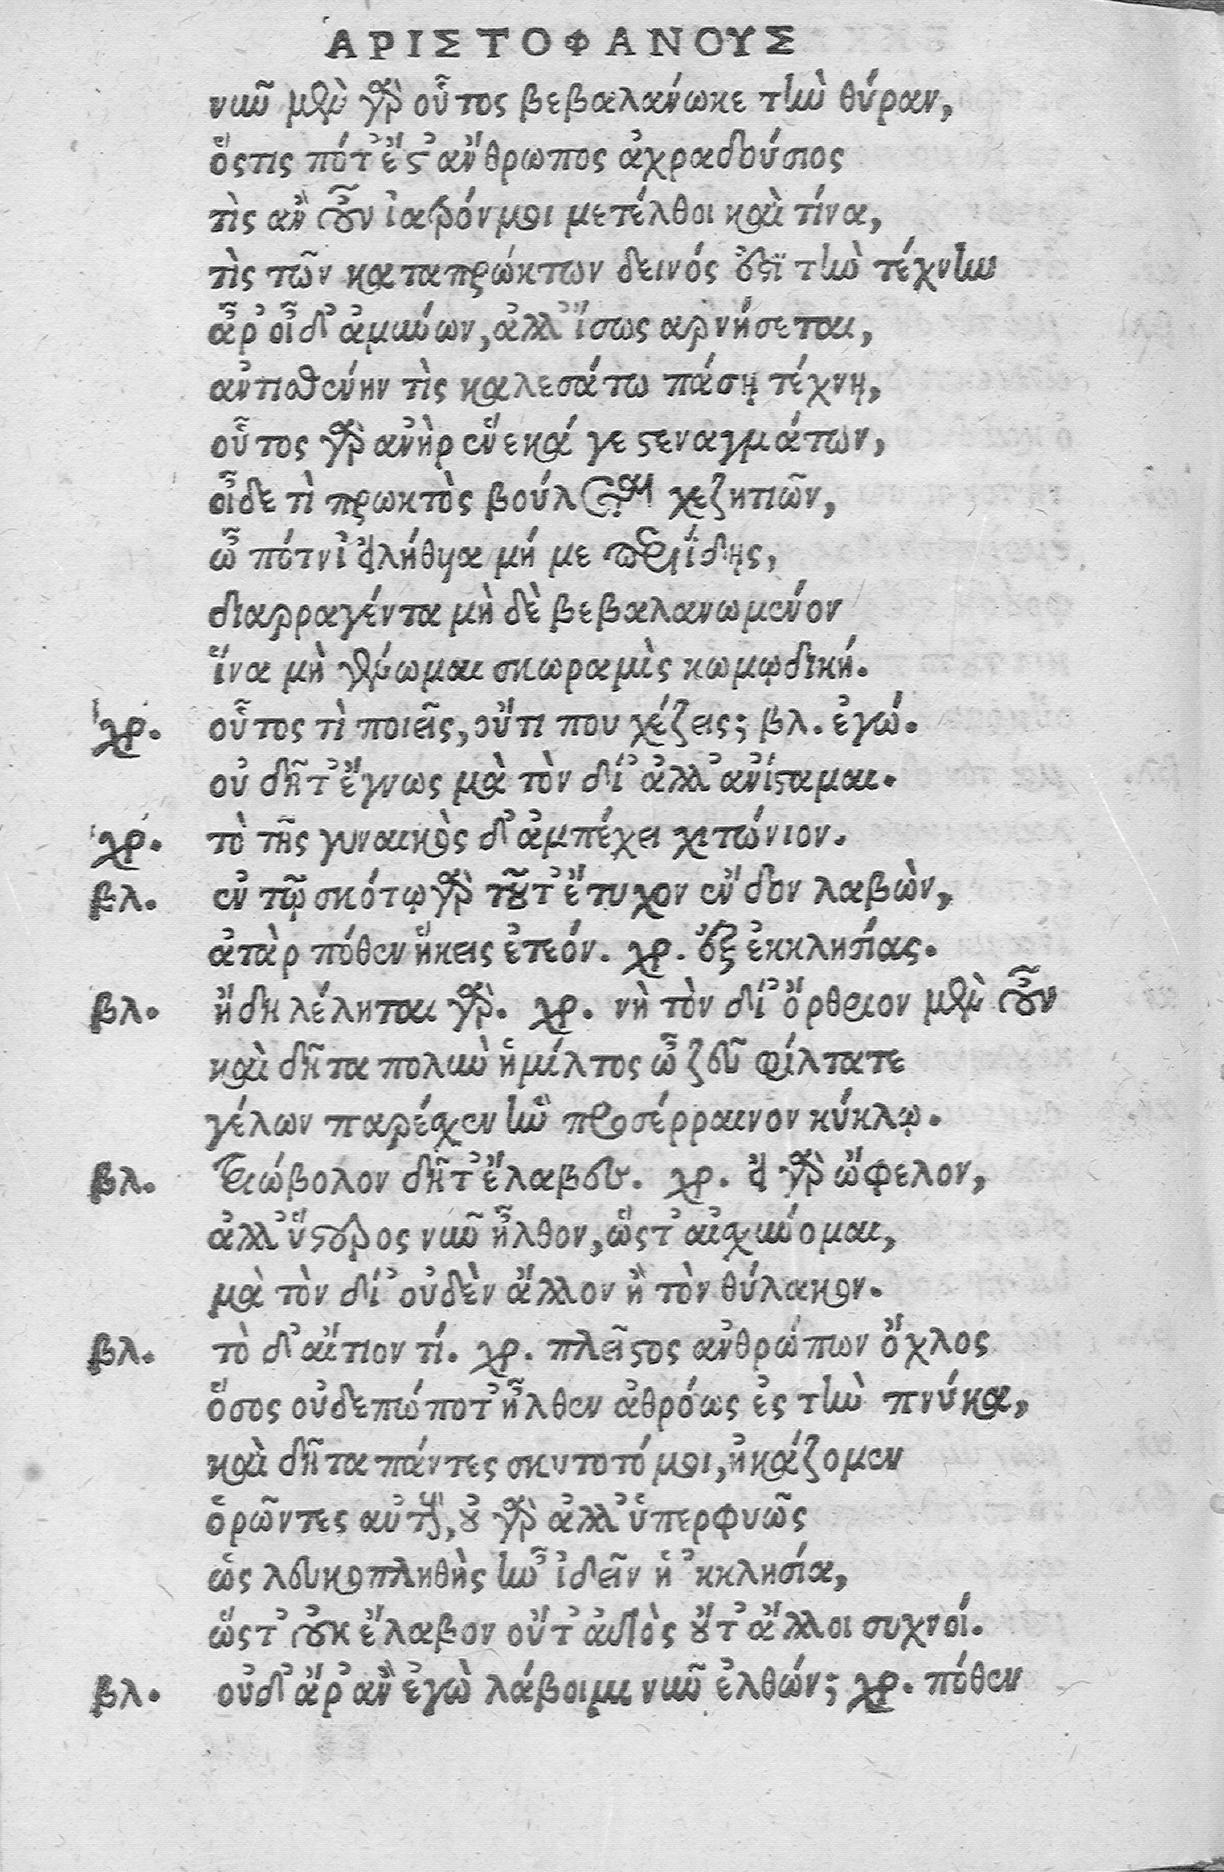 ΑΡΙΣΤΟΦΑΝΟΥΣ
νῦν μὲν γὰρ οὗτος βεβαλάνωκε τὴν θύραν,
ὅστις πότ' ἐστ' ἄνθρωπος ἀχραδούσιος
τὶς ἂν οὖν ἰατρόν μοι μετέλθοι καὶ τίνα,
τὶς τῶν καταπρώκτων δεινός ἐστι τὴν τέχνην
ἆρ' οἶδ' ἀμύνων, ἀλλ' ἴσως ἀρνήσεται,
ἀντισθένην τὶς καλεσάτω πάσῃ τέχνῃ,
οὗτος γὰρ ἀνὴρ ἕνεκά γε στεναγμάτων,
οἶδε τὶ πρωκτὸς βούλεται χεζητιῶν,
ὦ πότνι' εἰλήθυα μή με περιΐδῃς,
διαρραγέντα μὴ δὲ βεβαλανωμένον
ἵνα μὴ γένωμαι σκωραμὶς κωμῳδική.
χρ. οὗτος τὶ ποιεῖς, οὔτι που χέζεις; βλ. ἐγώ.
οὐ δῆτ' ἔγνως μὰ τὸν δί' ἀλλ' ἀνίσταμαι.
χρ. τὸ τῆς γυναικὸς δ' ἀμπέχει χιτώνιον.
βλ. ἐν τῷ σκότῳ γὰρ τοῦτ' ἔτυχον ἔνδον λαβὼν,
ἀτὰρ πόθεν ἥκεις ἐτεόν. χρ. ἐξ ἐκκλησίας.
βλ. ἤδη λέληται γὰρ. χρ. νὴ τὸν δί' ὄρθριον μὲν οὖν
καὶ δῆτα πολὺν ἡ μίλτος ὦ ζεῦ φίλτατε
γέλων παρέσχεν ἣν προσέρραινον κύκλῳ.
βλ. τριώβολον δῆτ' ἔλαβες. χρ. εἰ γὰρ ὤφελον,
ἀλλ' ὕστερος νῦν ἦλθον, ὥστ' αἰσχύνομαι,
μὰ τὸν δί' οὐδὲν ἄλλον ἢ τὸν θύλακον.
βλ. τὸ δ' αἴτιον τί. χρ. πλεῖστος ἀνθρώπων ὄχλος
ὅσος οὐδεπώποτ' ἦλθεν ἀθρόως ἐς τὴν πνύκα,
καὶ δῆτα πάντες σκυτοτόμοι, ἠκάζομεν
ὁρῶντες αὐτούς, οὐ γὰρ ἀλλ' ὑπερφυῶς
ὡς λευκοπληθὴς ἦν ἰδεῖν ἡ 'κκλησία,
ὥστ' οὐκ ἔλαβον οὔτ' αὐτὸς οὔτ' ἄλλοι συχνοί.
βλ. οὐδ' ἄρ' ἂν ἐγὼ λάβοιμι νῦν ἐλθών; χρ. πόθεν